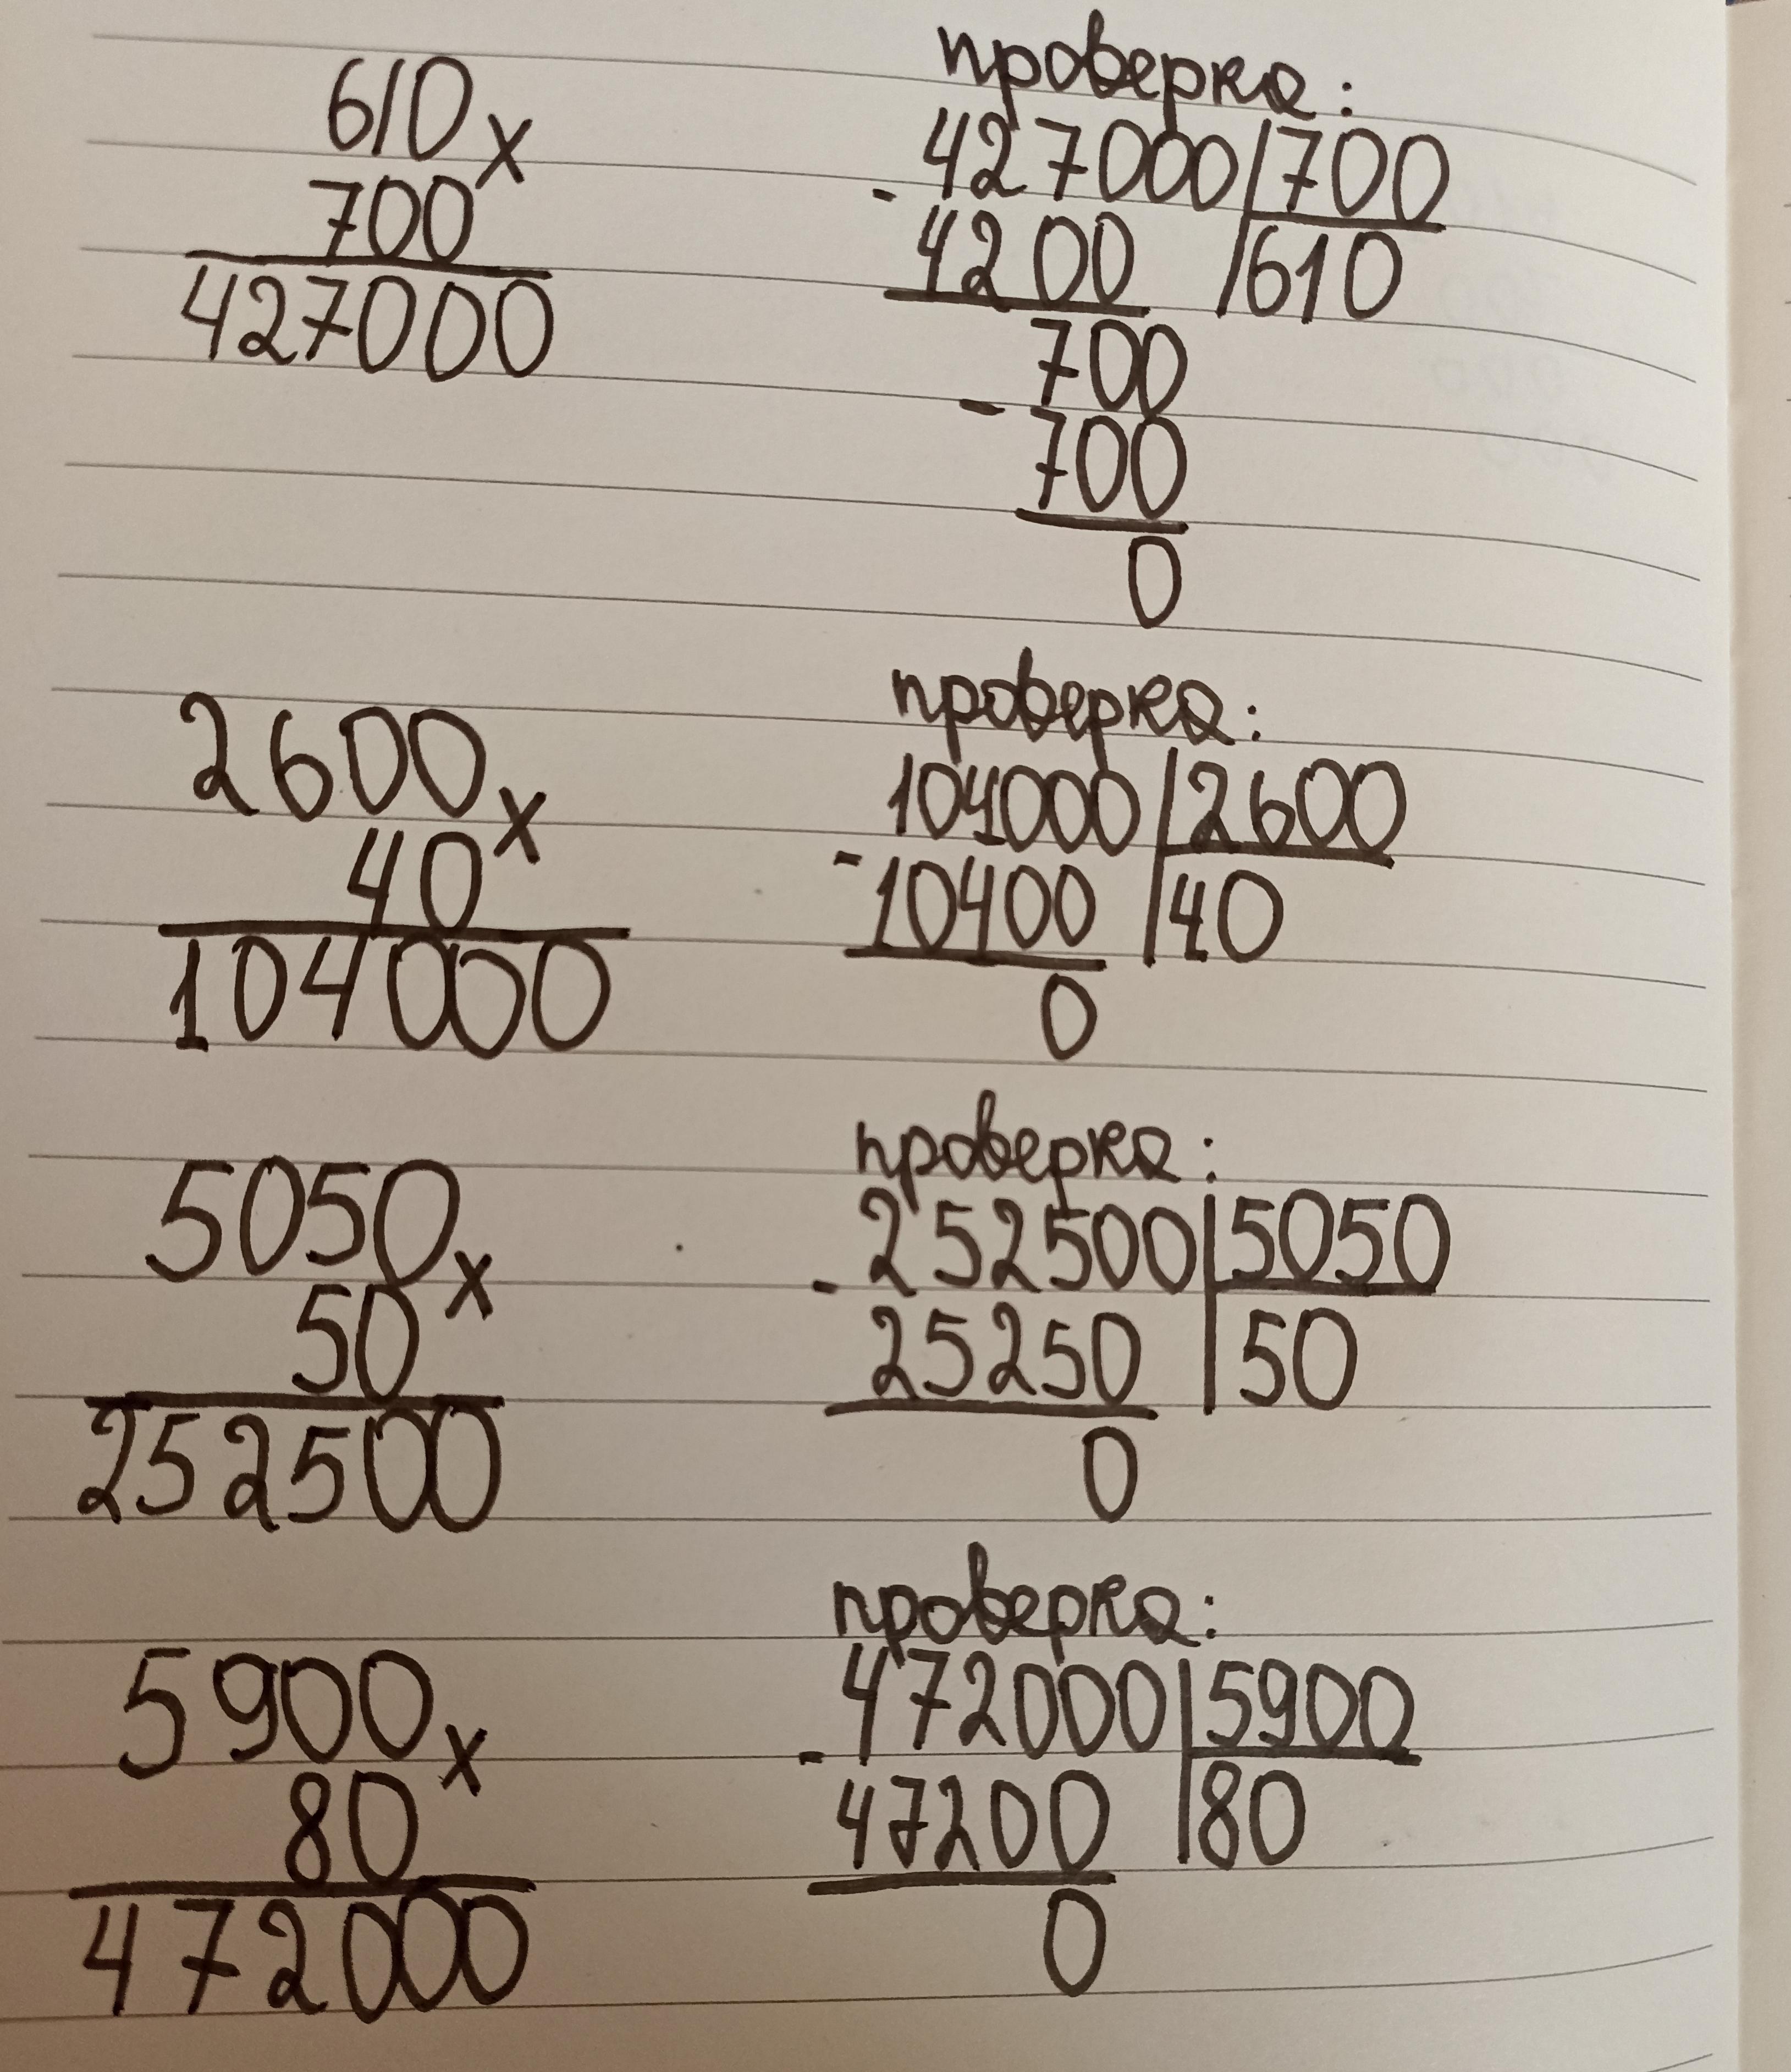 610 x
700
427000
проверка:
- 427000 | 700
4200 | 610
700
- 700
0
2600 x
40
104000
проверка:
104000 | 2600
- 10400 | 40
0
5050 x
50
252500
проверка:
- 252500 | 5050
25250 | 50
0
5900 x
80
472000
проверка:
- 472000 | 5900
47200 | 80
0